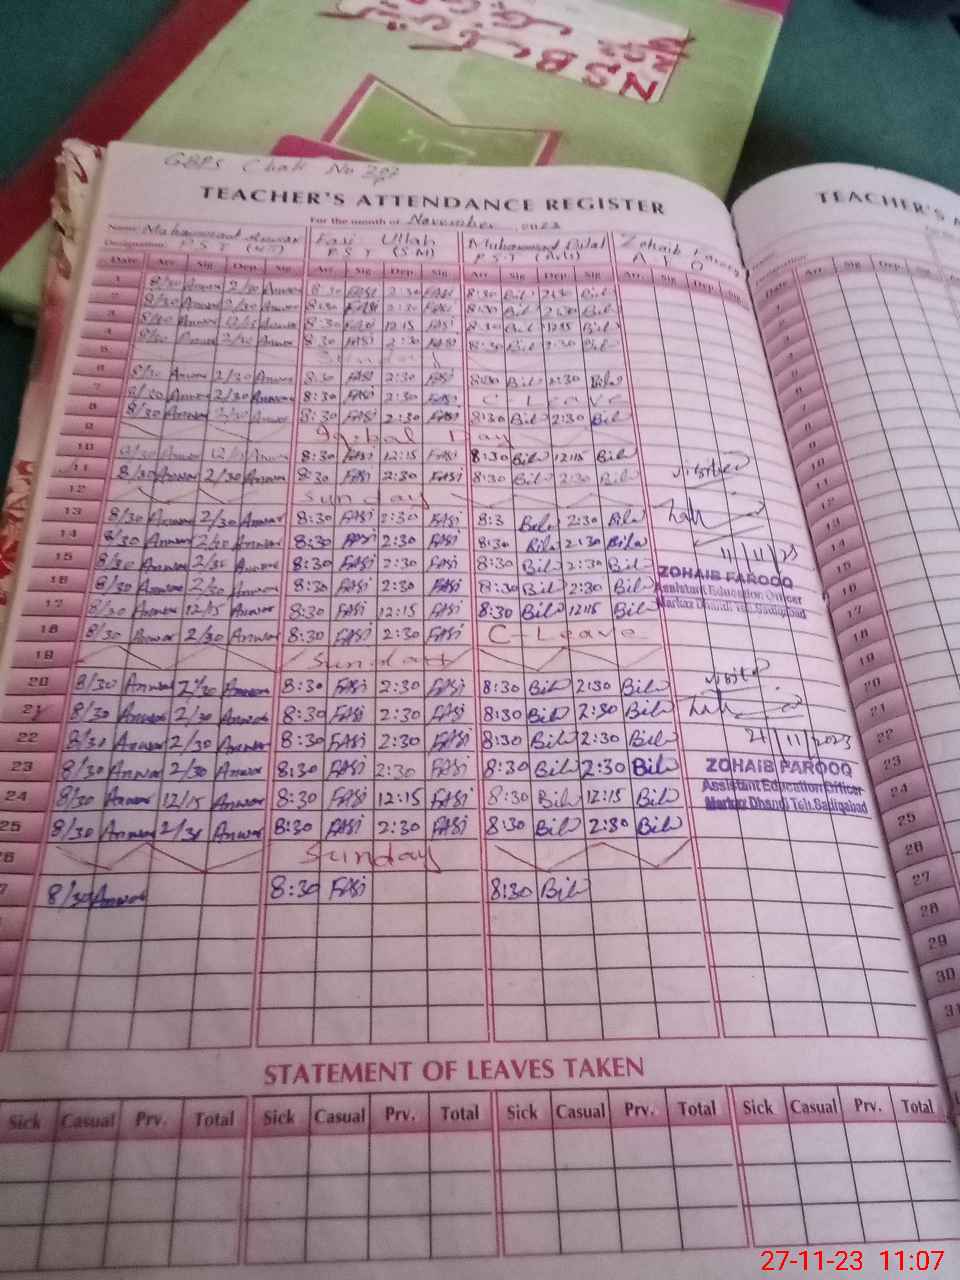 NSB
GBPS Chak No
TEACHER'S ATTENDANCE REGISTER
TEACHER'S
For the month of November 2023
Name Muhammad Anwar Fasi Ullah Muhammad Bilal Zohaib Farooq
Designation P.S.T P.S.T (S.M) P.S.T A E O
Date Arr. Sig Dep. Sig Arr. Sig Dep. Sig Arr. Sig Dep. Sig Arr. Sig Dep. Sig
1 8/30 Anwar 2/30 Anwar 8:30 FASi 2:30 FASi 8:30 Bil 2:30 Bil
2 8/30 Anwar 2/30 Anwar 8:30 FASi 2:30 FASi 8:30 Bil 2:30 Bil
3 8/30 Anwar 12/15 Anwar 8:30 FASi 12:15 FASi 8:30 Bil 12:15 Bil
4 8/30 Anwar 2/30 Anwar 8:30 FASi 2:30 FASi 8:30 Bil 2:30 Bil
5 Sunday
6 8/30 Anwar 2/30 Anwar 8:30 FASi 2:30 FASi 8:30 Bil 2:30 Bil
7 8/30 Anwar 2/30 Anwar 8:30 FASi 2:30 FASi C Leave
8 8/30 Anwar 2/30 Anwar 8:30 FASi 2:30 FASi 8:30 Bil 2:30 Bil
9 Iqbal Day
10 8/30 Anwar 12/15 Anwar 8:30 FASi 12:15 FASi 8:30 Bil 12:15 Bil
11 8/30 Anwar 2/30 Anwar 8:30 FASi 2:30 FASi 8:30 Bil 2:30 Bil visited
12 Sunday
13 8/30 Anwar 2/30 Anwar 8:30 FASi 2:30 FASi 8:3 Bil 2:30 Bil
14 8/30 Anwar 2/30 Anwar 8:30 FASi 2:30 FASi 8:30 Bil 2:30 Bil
11/11/23
15 8/30 Anwar 2/30 Anwar 8:30 FASi 2:30 FASi 8:30 Bil 2:30 Bil
ZOHAIB FAROOQ
16 8/30 Anwar 2/30 Anwar 8:30 FASi 2:30 FASi 8:30 Bil 2:30 Bil
Assistant Education Officer
17 8/30 Anwar 12/15 Anwar 8:30 FASi 12:15 FASi 8:30 Bil 12:15 Bil
Markaz Dhandi Teh.Sadiqabad
18 8/30 Anwar 2/30 Anwar 8:30 FASi 2:30 FASi C-Leave
19 Sunday
20 8/30 Anwar 2/30 Anwar 8:30 FASi 2:30 FASi 8:30 Bil 2:30 Bil visited
21 8/30 Anwar 2/30 Anwar 8:30 FASi 2:30 FASi 8:30 Bil 2:30 Bil
22 8/30 Anwar 2/30 Anwar 8:30 FASi 2:30 FASi 8:30 Bil 2:30 Bil 21/11/2023
23 8/30 Anwar 2/30 Anwar 8:30 FASi 2:30 FASi 8:30 Bil 2:30 Bil ZOHAIB FAROOQ
Assistant Education Officer
24 8/30 Anwar 12/15 Anwar 8:30 FASi 12:15 FASi 8:30 Bil 12:15 Bil Markaz Dhandi Teh.Sadiqabad
25 8/30 Anwar 2/30 Anwar 8:30 FASi 2:30 FASi 8:30 Bil 2:30 Bil
26 Sunday
7 8/30 Anwar 8:30 FASi 8:30 Bil
STATEMENT OF LEAVES TAKEN
Sick Casual Prv. Total Sick Casual Prv. Total Sick Casual Prv. Total Sick Casual Prv. Total
Date Arr. Sig Dep. Sig
10
11
12
13
14
15
16
17
18
19
20
21
22
23
24
25
26
27
28
29
30
31
27-11-23 11:07